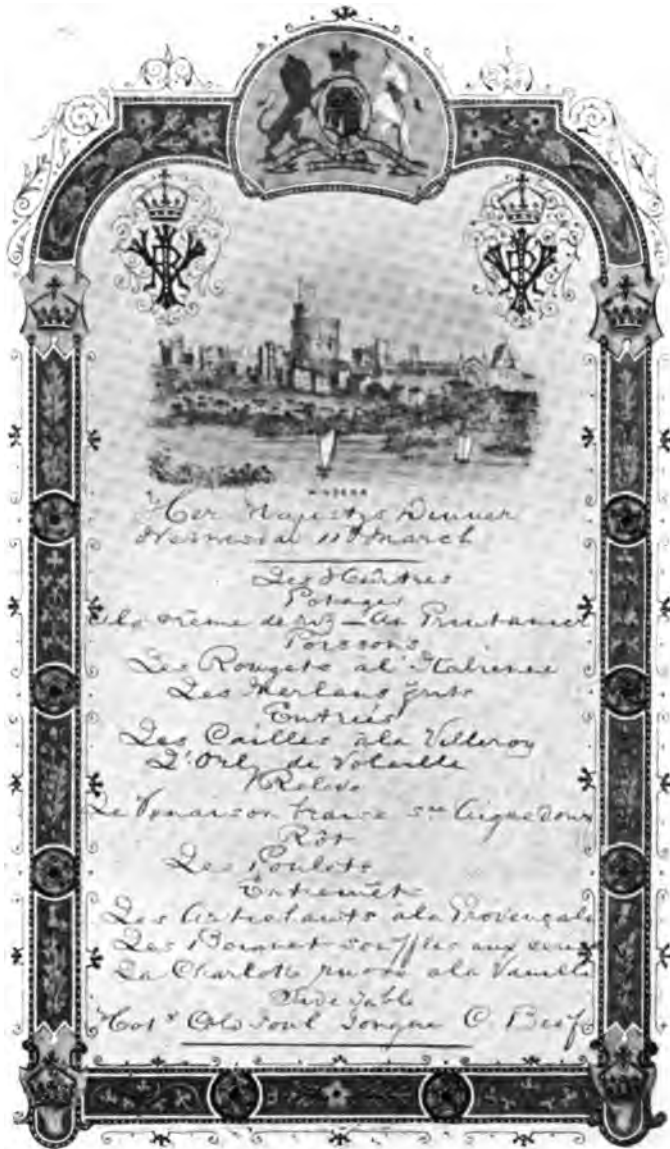 WINDSOR
Her Majestys Dinner
11th March
Les Huîtres
Potages
A la Crême de riz — Au Printanier
Poissons
Les Rougets a l'Italienne
Les Merlans frits
Entrées
Les Cailles à la Villeroy
D'Orly de Volaille
Relevé
Le Venaison braisé sce Aigredouce
Rôt
Les Poulets
Entremêts
Les Artichauts a la Provençale
Les Beignet soufflés aux
La Charlotte russe a la Vanille
Side Table
Hot & Cold Fowl Tongue C. Beef